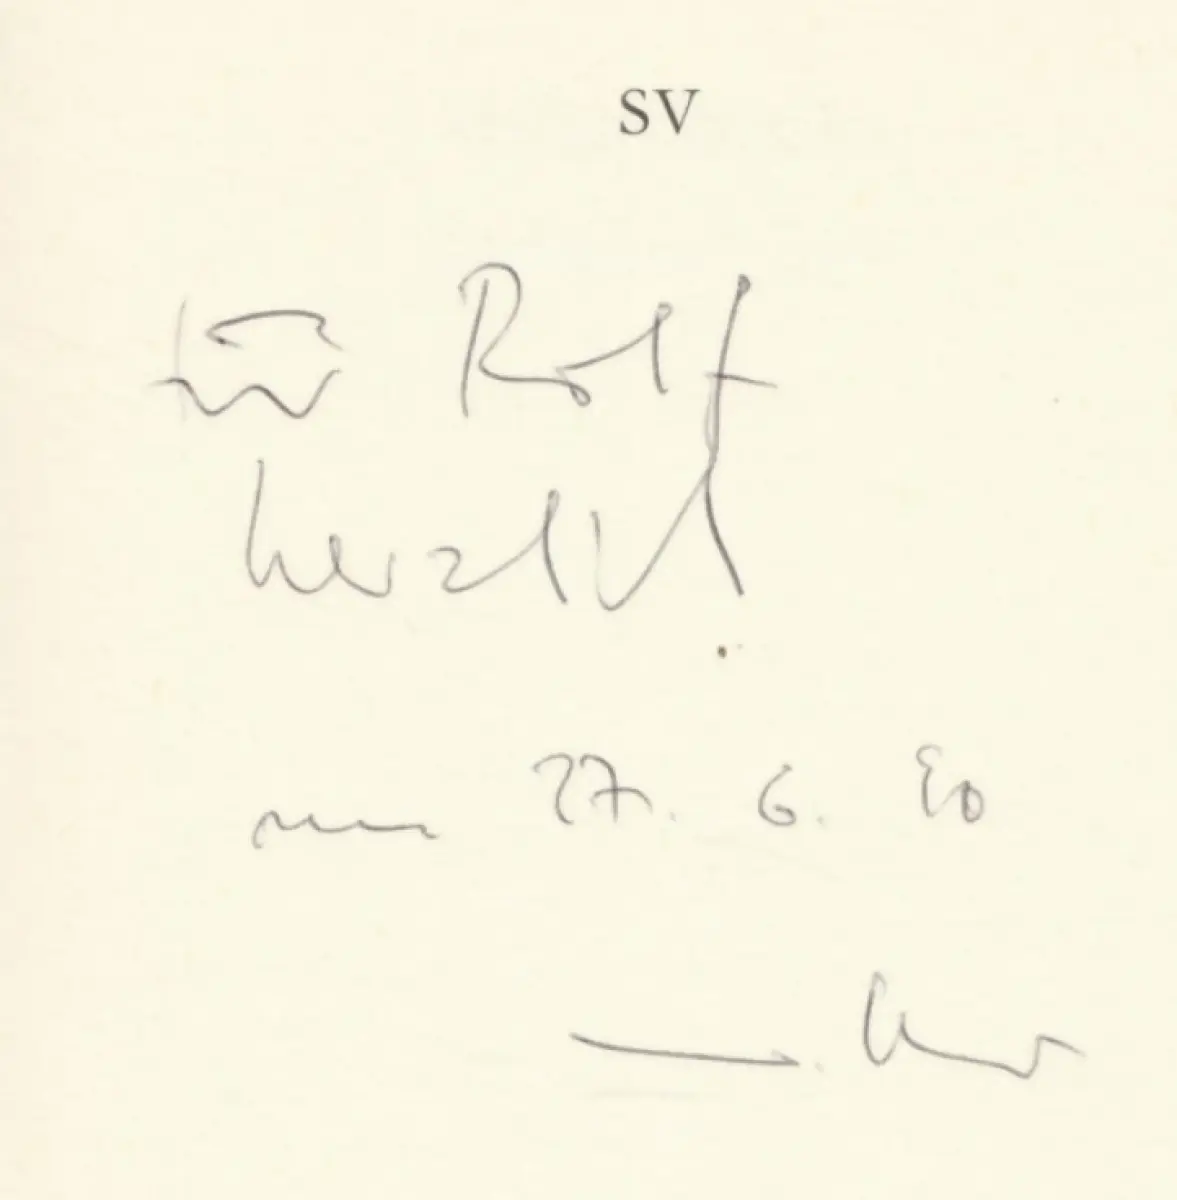 SV
für Rolf
herzlich
27. 6. 80